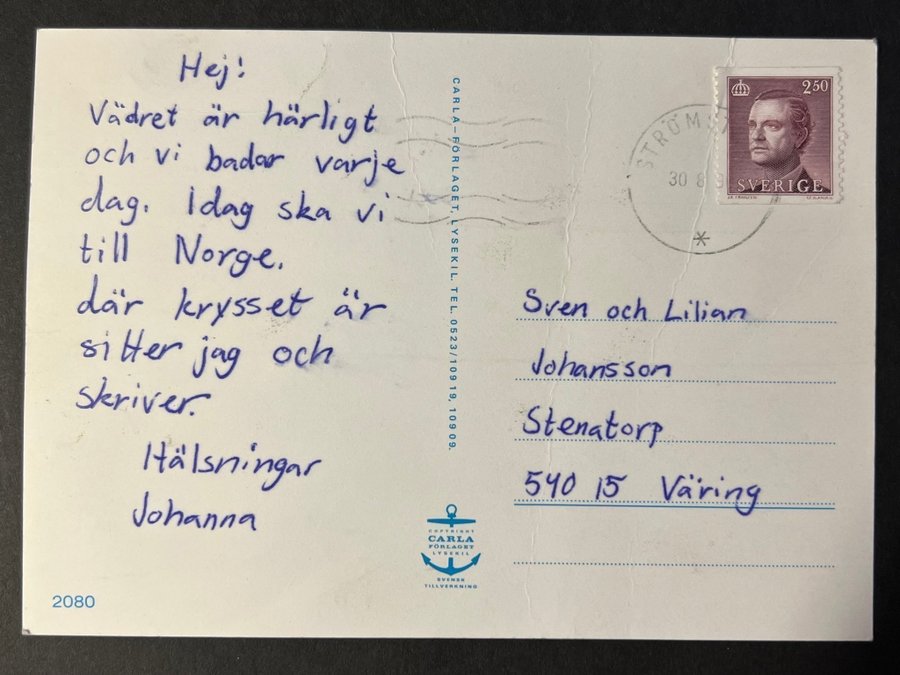 Hej!
Vädret är härligt
och vi badar varje
dag. Idag ska vi
till Norge.
där krysset är
sitter jag och
skriver.
Hälsningar
Johanna
2080
CARLA-FÖRLAGET, LYSEKIL. TEL. 0523/109 19, 109 09.
COPYRIGHT
CARLA
FÖRLAGET
LYSEKIL
SVENSK
TILLVERKNING
250
SVERIGE
30 8
Sven och Lilian
Johansson
Stenatorp
540 15 Väring